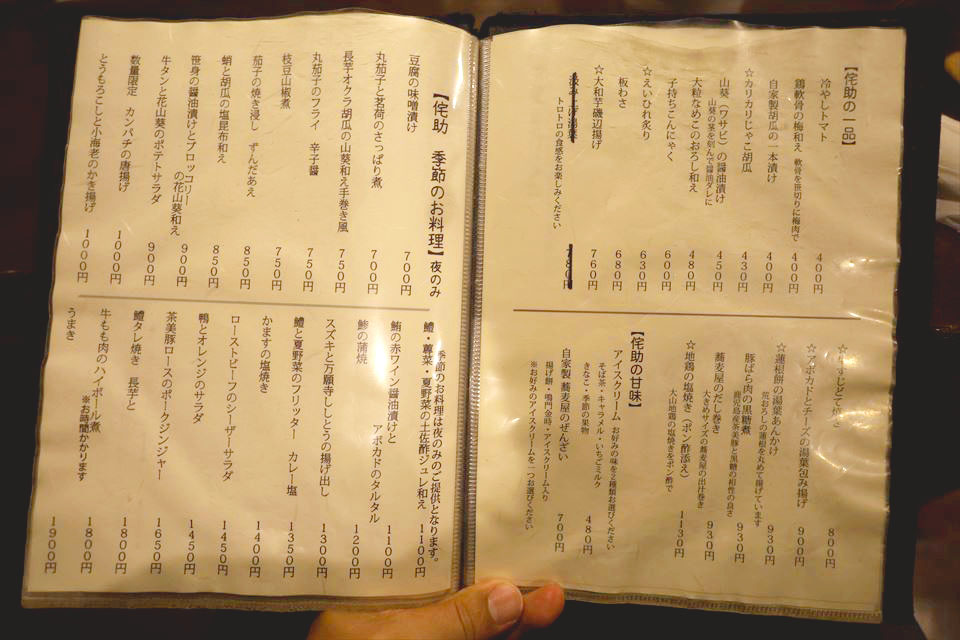 【侘助の一品】
冷やしトマト 400円
鶏軟骨の梅和え 軟骨を笹切りに梅肉で 400円
自家製胡瓜の一本漬け 400円
☆カリカリじゃこ胡瓜 430円
山葵(ワサビ)の醤油漬け 450円
山葵の茎を刻んで醤油ダレに
大粒なめこのおろし和え 480円
子持ちこんにゃく 600円
☆えいひれ炙り 630円
板わさ 680円
☆大和芋磯辺揚げ 760円
トロトロの食感をお楽しみください
780円
800円
☆アボカドとチーズの湯葉包み揚げ 900円
☆蓮根餅の湯葉あんかけ 930円
荒おろしの蓮根を丸めて揚げています
豚ばら肉の黒糖煮 930円
鹿児島産茶美豚と黒糖の相性の良さ
蕎麦屋のだし巻き 930円
大きめサイズの蕎麦屋の出汁巻き
☆地鶏の塩焼き(ポン酢添え) 1130円
大山地鶏の塩焼きをポン酢で
【侘助の甘味】
アイスクリーム お好みの味を2種類お選びください 480円
そば茶・キャラメル・いちごミルク
きなこ・季節の果物
自家製 蕎麦屋のぜんざい 700円
揚げ餅・鳴門金時・アイスクリーム入り
※お好みのアイスクリームを一つお選びください
【侘助 季節のお料理】夜のみ
豆腐の味噌漬け 700円
丸茄子と茗荷のさっぱり煮 700円
長芋オクラ胡瓜の山葵和え手巻き風 750円
丸茄子のフライ 辛子醤 750円
枝豆山椒煮 750円
茄子の焼き浸し ずんだあえ 850円
蛸と胡瓜の塩昆布和え 850円
笹身の醤油漬けとブロッコリー
の花山葵和え 900円
牛タンと花山葵のポテトサラダ 900円
数量限定 カンパチの唐揚げ 1000円
とうもろこしと小海老のかき揚げ 1000円
季節のお料理は夜のみのご提供となります。
鱧・蓴菜・夏野菜の土佐酢ジュレ和え 1100円
鮪の赤ワイン醤油漬けと
アボカドのタルタル 1100円
鯵の蒲焼 1200円
スズキと万願寺ししとうの揚げ出し 1300円
鱧と夏野菜のフリッター カレー塩 1350円
かますの塩焼き 1400円
ローストビーフのシーザーサラダ 1450円
鴨とオレンジのサラダ 1450円
茶美豚ロースのポークジンジャー 1650円
鱧タレ焼き 長芋と 1800円
牛もも肉のハイボール煮 1800円
※お時間かかります
うまき 1900円